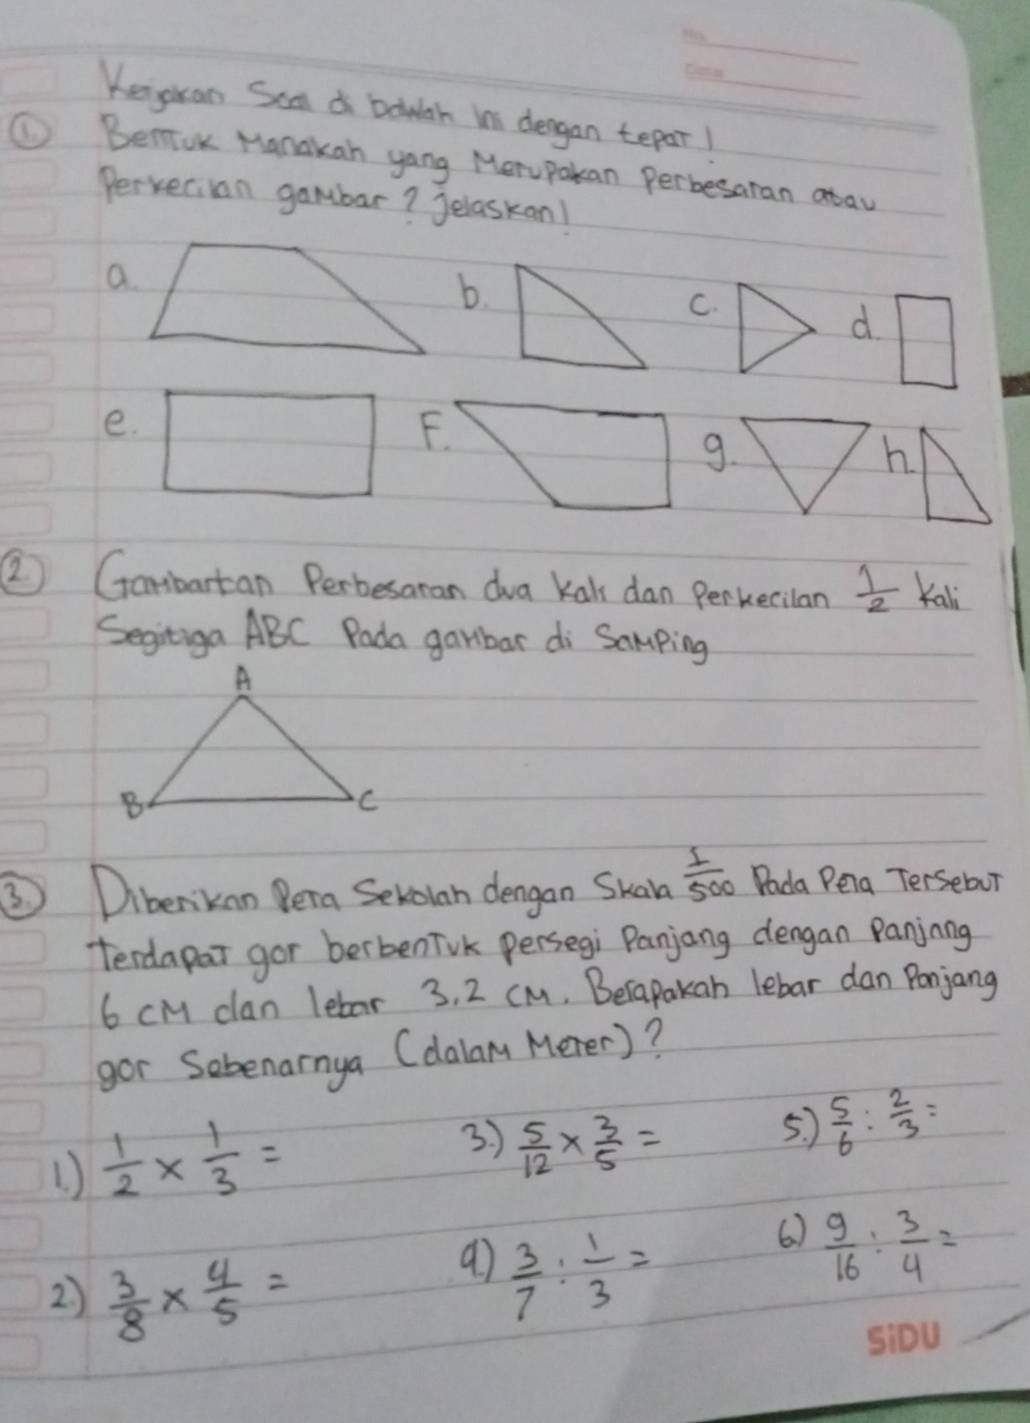 Kerjakan Soal di bawah ini dengan tepat!
① Bentuk Manakah yang Merupakan Perbesaran atau
Perkecilan gambar? Jelaskan!
a. b. c. d.
e. F. g. h.
② Gambarkan Perbesaran dua kali dan Perkecilan 1/2 kali
Segitiga ABC Pada gambar di Samping
A
B C
③ Diberikan Peta Sekolah dengan Skala 1/500 Pada Peta Tersebut
terdapat gor berbentuk persegi Panjang dengan Panjang
6 cm dan lebar 3,2 cm. Berapakah lebar dan Panjang
gor Sebenarnya (dalam Meter)?
1.) 1/2 × 1/3 = 3.) 5/12 × 3/5 = 5.) 5/6 : 2/3 =
2.) 3/8 × 4/5 = 4) 3/7 : 1/3 = 6) 9/16 : 3/4 =
SiDU